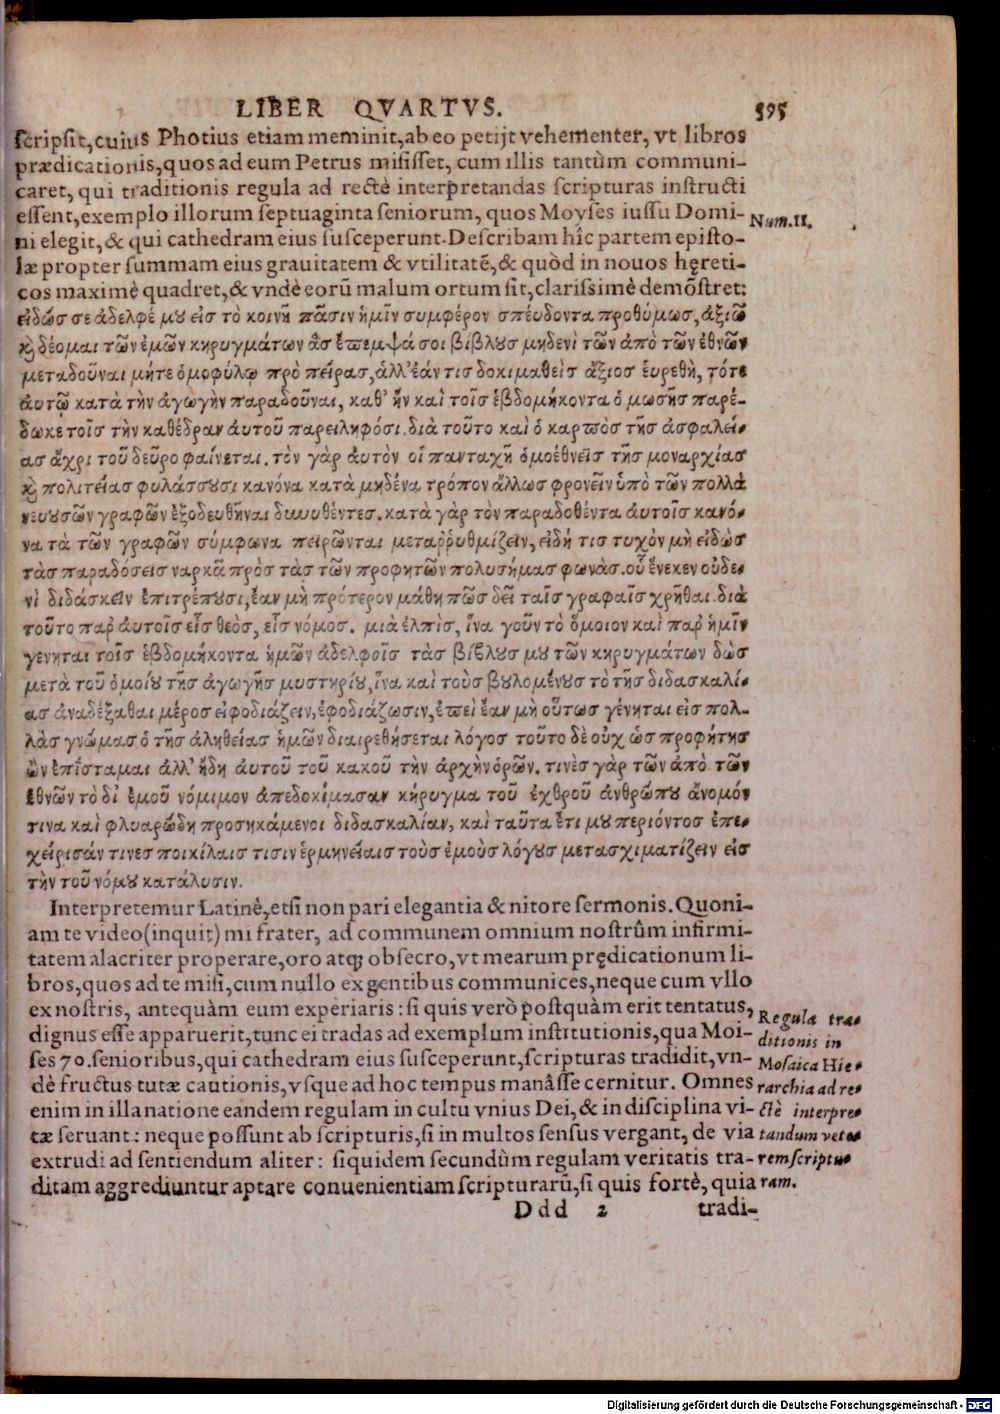 LIBER QVARTVS. 595
scripsit, cuius Photius etiam meminit, ab eo petijt vehementer, vt libros
prædicationis, quos ad eum Petrus misisset, cum illis tantùm communi-
caret, qui traditionis regula ad rectè interpretandas scripturas instructi
essent, exemplo illorum septuaginta seniorum, quos Moyses iussu Domi-
ni elegit, & qui cathedram eius susceperunt. Describam hîc partem episto-
læ propter summam eius grauitatem & vtilitatē, & quòd in nouos hęreti-
cos maximè quadret, & vndè eorū malum ortum sit, clarissimè demōstret:
Num. II.
εἰδώς σε ἀδελφέ μου εἰς τὸ κοινῆ πᾶσιν ἡμῖν συμφέρον σπέυδοντα προθύμως, ἀξιῶ
καὶ δέομαι τῶν ἐμῶν κηρυγμάτων ἃς ἔπεμψά σοι βίβλους μηδενὶ τῶν ἀπὸ τῶν ἐθνῶν
μεταδοῦναι μήτε ὁμοφύλῳ πρὸ πείρας, ἀλλ' ἐάν τις δοκιμαθεὶς ἄξιος ἑυρεθῆ, τότε
ἀυτῷ κατὰ τὴν ἀγωγὴν παραδοῦναι, καθ' ἣν καὶ τοῖς ἑβδομήκοντα ὁ μωσῆς παρέ-
δωκε τοῖς τὴν καθέδραν ἀυτοῦ παρειληφόσι. διὰ τοῦτο καὶ ὁ καρπὸς τῆς ἀσφαλεί-
ας ἄχρι τοῦ δεῦρο φαίνεται. τὸν γὰρ ἀυτὸν οἱ πανταχῆ ὁμοέθνεῖς τῆς μοναρχίας
καὶ πολιτείας φυλάσσουσι κανόνα κατὰ μηδένα τρόπον ἄλλως φρονεῖν ὑπὸ τῶν πολλὰ
νευουσῶν γραφῶν ἐξοδευθῆναι δυνηθέντες. κατὰ γὰρ τὸν παραδοθέντα ἀυτοῖς κανό-
να τὰ τῶν γραφῶν σύμφωνα πειρῶνται μεταῤῥυθμίζειν, εἰδή τις τυχὸν μὴ εἰδὼς
τὰς παραδόσεις ναρκᾷ πρὸς τὰς τῶν προφητῶν πολυσήμας φωνὰς. οὗ ἕνεκεν οὐδε-
νὶ διδάσκειν ἐπιτρέπουσι, ἐαν μὴ πρότερον μάθῃ πῶς δεῖ ταῖς γραφαῖς χρῆσθαι. διὰ
τοῦτο παρ' ἀυτοῖς εἷς θεὸς, εἷς νόμος. μιὰ ἐλπὶς, ἵνα γοῦν τὸ ὅμοιον καὶ παρ' ἡμῖν
γένηται τοῖς ἑβδομήκοντα ἡμῶν ἀδελφοῖς τὰς βίβλους μου τῶν κηρυγμάτων δὼς
μετὰ τοῦ ὁμοίου τῆς ἀγωγῆς μυστηρίου, ἵνα καὶ τοὺς βουλομένους τὸ τῆς διδασκαλί-
ας ἀναδέξασθαι μέρος εἰφοδιάζειν, ἐφοδιάζωσιν, ἐπεὶ ἐαν μὴ οὕτως γένηται εἰς πολ-
λὰς γνώμας ὁ τῆς ἀληθείας ἡμῶν διαιρεθήσεται λόγος τοῦτο δὲ οὐχ ὡς προφήτης
ὢν ἐπίσταμαι ἀλλ' ἤδη ἀυτοῦ τοῦ κακοῦ τὴν ἀρχὴν ὁρῶν. τινὲς γὰρ τῶν ἀπὸ τῶν
ἐθνῶν τὸ δι' ἐμοῦ νόμιμον ἀπεδοκίμασαν κήρυγμα τοῦ ἐχθροῦ ἀνθρώπου ἄνομόν
τινα καὶ φλυαρώδη προσηκάμενοι διδασκαλίαν, καὶ ταῦτα ἔτι μου περιόντος ἐπε-
χείρισάν τινες ποικίλαις τισιν ἑρμηνείαις τοὺς ἐμοὺς λόγους μετασχιματίζειν εἰς
τὴν τοῦ νόμου κατάλυσιν.
Interpretemur Latinè, etsi non pari elegantia & nitore sermonis. Quoni-
am te video (inquit) mi frater, ad communem omnium nostrûm infirmi-
tatem alacriter properare, oro atq; obsecro, vt mearum prędicationum li-
bros, quos ad te misi, cum nullo ex gentibus communices, neque cum vllo
ex nostris, antequàm eum experiaris: si quis verò postquàm erit tentatus,
dignus esse apparuerit, tunc ei tradas ad exemplum institutionis, qua Moi-
ses 70. senioribus, qui cathedram eius susceperunt, scripturas tradidit, vn-
dè fructus tutæ cautionis, vsque ad hoc tempus manâsse cernitur. Omnes
enim in illa natione eandem regulam in cultu vnius Dei, & in disciplina vi-
tæ seruant: neque possunt ab scripturis, si in multos sensus vergant, de via
extrudi ad sentiendum aliter: siquidem secundùm regulam veritatis tra-
ditam aggrediuntur aptare conuenientiam scripturarū, si quis fortè, quia
Regula tra-
ditionis in
Mosaica Hie-
rarchia ad re-
ctè interpre-
tandum vete-
rem scriptu-
ram.
Ddd 2 tradi-
Digitalisierung gefördert durch die Deutsche Forschungsgemeinschaft - DFG